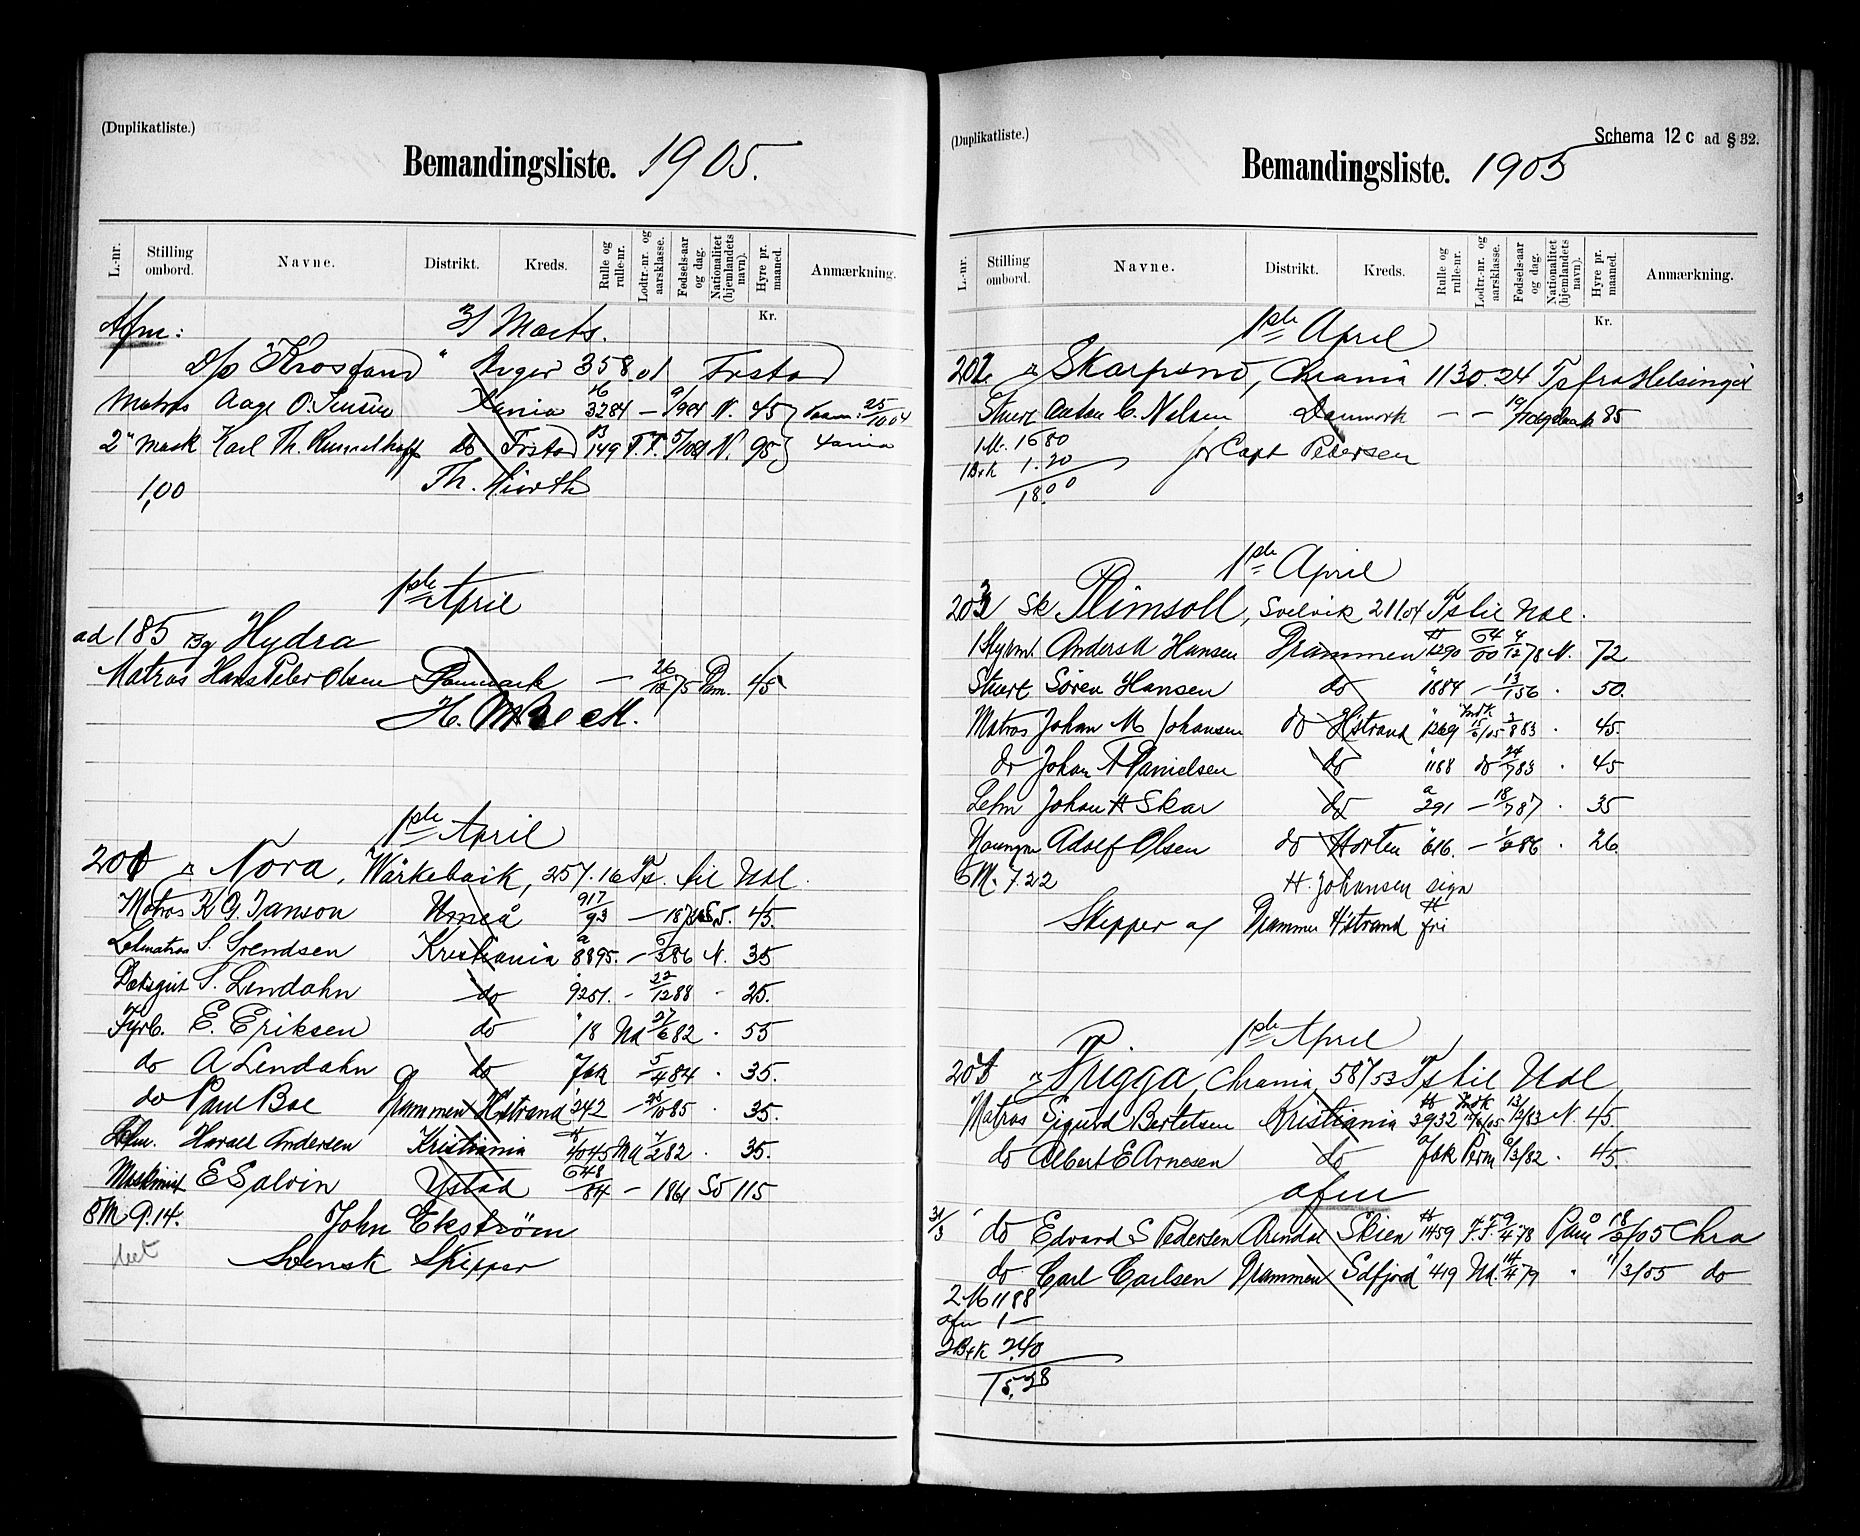 (Duplikatliste.)
Bemandingsliste. 1905.
L.-nr. Stilling ombord. Navne. Distrikt. Kreds. Rulle og rulle-nr. Lodtr.-nr. og aarsklasse. Fødsels-aar og dag. Nationalitet (hjemlandets navn). Hyre pr. maaned. Anmærkning.
Kr.
Afm: 31 Marts.
D/s "Krosfond" Anger 358.01 Frstad
Matros Aage O. Jensen Xania 3284 — N. 45 25/10 04
2" Mask Karl Th. Rummelhoff do Frstad 149 F.F. N. 95 Xania
1,00 Th. Hiorth
1ste April
ad 185 Bg Hydra
Matros Hans Peter Olsen Danmark — 26/12 75 Dan. 45
H. M. Beck.
1ste April
201 Nora, Warkebaik, 257.16 Ts. til Udl.
Matros K G. Janson Umeå 917/93 — 45.
Letmatros S. Svendsen Kristiania 8895. — 386 N. 35
Dæksgut S. Lendahn do 9251. - 22/12 88 . 25.
Fyrb. E. Eriksen do " 18 Ud 27/6 82 . 55
do A Lendahn do fak 5/4 84 . 35.
do Paul Boe Drammen H'strand 242 — 26/10 85 . 35.
Lefm. Harald Andersen Kristiania 4045 Ud 7/2 82 . 35.
Maskinist E Salvin Ystad 648/84 — 1861 Sv 115
8 M 9.14. John Ekström
Svensk Skipper
(Duplikatliste.)
Schema 12 c ad § 32.
Bemandingsliste. 1905
L.-nr. Stilling ombord. Navne. Distrikt. Kreds. Rulle og rulle-nr. Lodtr.-nr. og aarsklasse. Fødsels-aar og dag. Nationalitet (hjemlandets navn). Hyre pr. maaned. Anmærkning.
Kr.
1ste April
202. Skarpsno, Chrania 1130.24 Ts fra Helsingør
Stuert Anton C. Nelsen Danmark — — 85
1 M. 16.80 for Capt Petersen
1 B+k 1.20
18.00
1ste April
203 Sk Plimsoll, Svelvik 211.04 Ts til Udl.
1 Styrm. Anders A Hansen Drammen 1290 64/00 4/12 78 N. 72
Stuert Søren Hansen do " 1884 — 13/1 56 . 50.
Matros Johan M Johansen do H'strand " 1269 15/6/05 2/8 83 . 45.
do Johan F Danielsen do " 1188 do 24/7 83 . 45
Lefm Johan H Skar do 291 — 18/7 87 . 35
Youngm Adolf Olsen do Horten " 616. — 86 . 26.
6 M. 7.22 H. Johansen sign
Skipper af Drammen H'strand fri
1ste April
204 Frigga, Chrania, 587/53 Ts til Udl
Matros Sigurd Bertelsen Kristiania 3932 15/6/05 N. 45.
do Albert E Arnesen do fak Perm 6/3/82 . 45.
afm
31/3 do Edvard S Pedersen Arendal Skien 1459 F.F. 9/4 78 18/3/05 Chra
do Carl Carlsen Drammen Sdfjord " 419 Ud. 14/4 79 " 11/3/05 do
2 M 11 88
afm 1 —
2 B+k 2.40
15.28